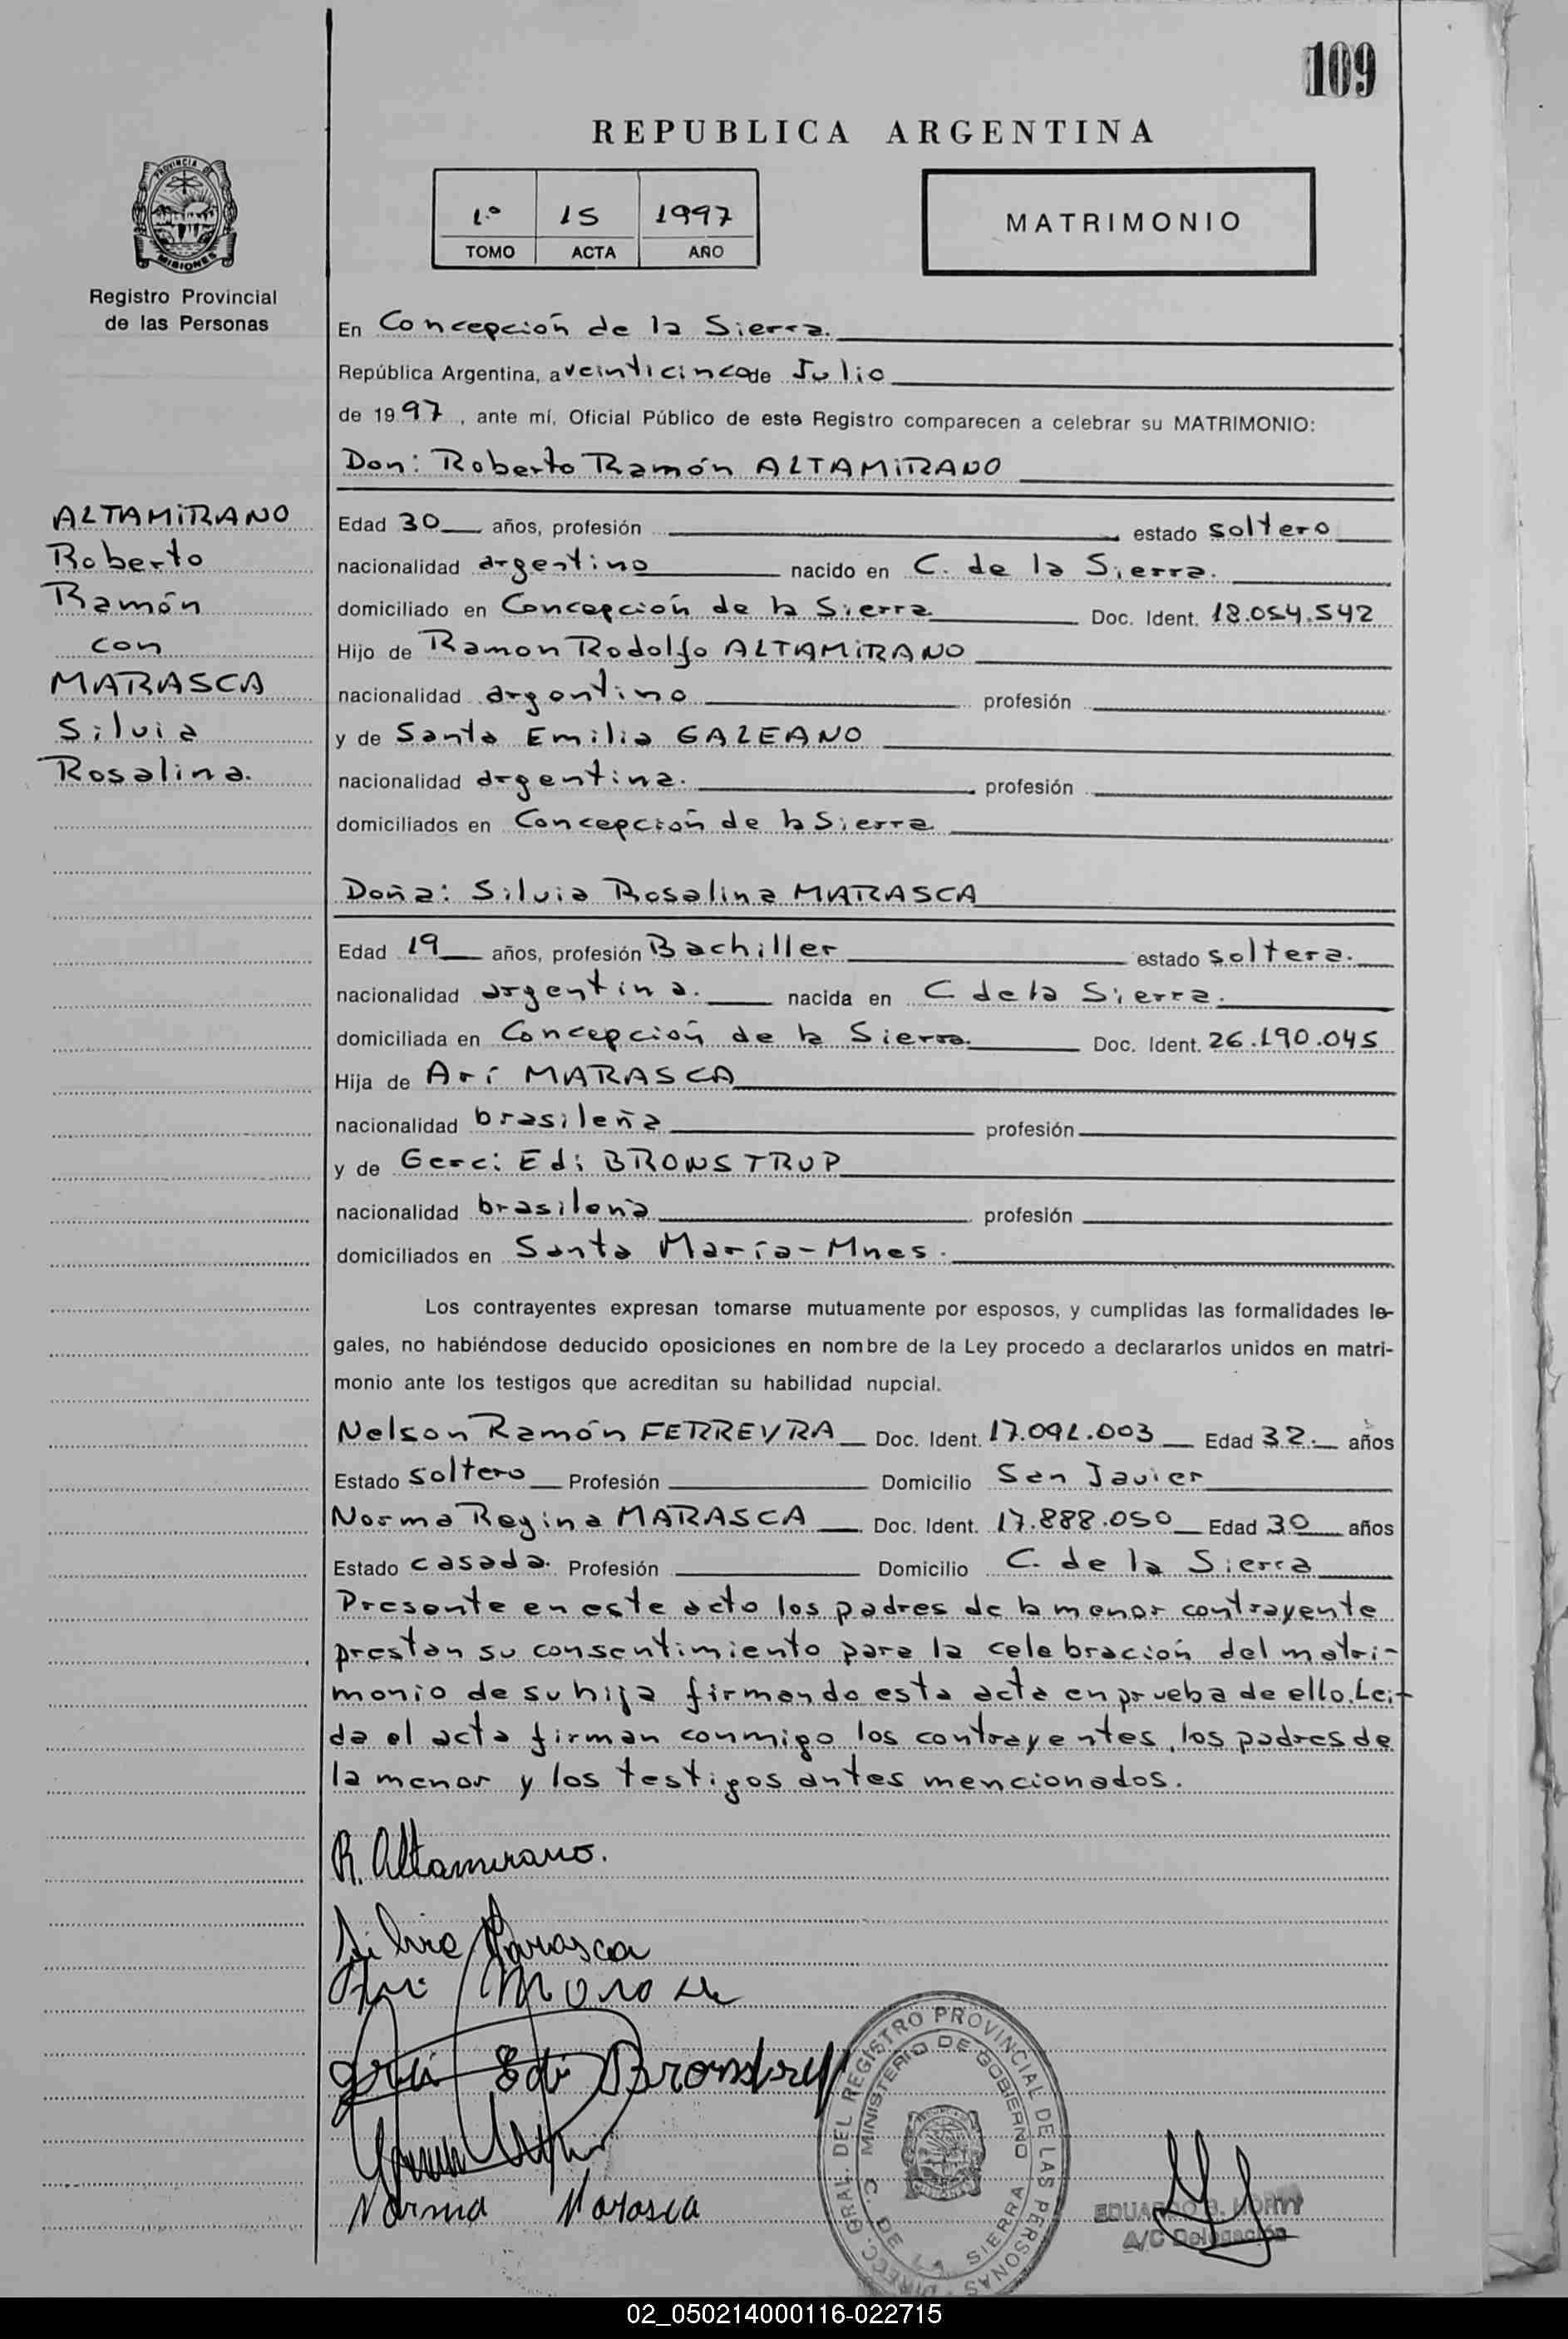 109
REPUBLICA ARGENTINA
PROVINCIA DE
MISIONES
Registro Provincial
de las Personas
1º 15 1997
TOMO ACTA AÑO
MATRIMONIO
En Concepción de la Sierra.
República Argentina, a veinticinco de Julio
de 1997, ante mí, Oficial Público de este Registro comparecen a celebrar su MATRIMONIO:
Don: Roberto Ramón ALTAMiRANO
ALTAMiRANO
Roberto
Ramón
con
MARASCA
Silvia
Rosalina.
Edad 30 años, profesión estado soltero
nacionalidad argentino nacido en C. de la Sierra.
domiciliado en Concepción de la Sierra Doc. Ident. 18.054.542
Hijo de Ramon Rodolfo ALTAMiRANO
nacionalidad argentino profesión
y de Santa Emilia GALEANO
nacionalidad argentina. profesión
domiciliados en Concepción de la Sierra
Doña: Silvia Rosalina MARASCA
Edad 19 años, profesión Bachiller estado soltera.
nacionalidad argentina. nacida en C de la Sierra.
domiciliada en Concepción de la Sierra. Doc. Ident. 26.190.045
Hija de Arí MARASCA
nacionalidad brasileña profesión
y de Gerci Edi BRONSTRUP
nacionalidad brasileña profesión
domiciliados en Santa María-Mnes.
Los contrayentes expresan tomarse mutuamente por esposos, y cumplidas las formalidades le-
gales, no habiéndose deducido oposiciones en nombre de la Ley procedo a declararlos unidos en matri-
monio ante los testigos que acreditan su habilidad nupcial.
Nelson Ramón FERREYRA Doc. Ident. 17.091.003 Edad 32. años
Estado soltero Profesión Domicilio San Javier
Norma Regina MARASCA Doc. Ident. 17.888.050 Edad 30 años
Estado casada. Profesión Domicilio C. de la Sierra
Presente en este acto los padres de la menor contrayente
prestan su consentimiento para la celebración del matri-
monio de su hija firmando esta acta en prueba de ello. Lei-
da el acta firman conmigo los contrayentes, los padres de
la menor y los testigos antes mencionados.
R. Altamirano.
Silvia Marasca
Edi Bronstrup
Norma Marasca
DIRECC. GRAL. DEL REGISTRO PROVINCIAL DE LAS PERSONAS
MINISTERIO DE GOBIERNO
C. DE LA SIERRA
EDUARDO
A/C Delegación
02_050214000116-022715